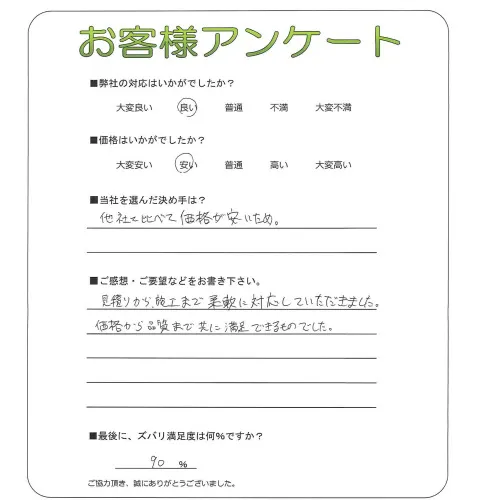 お客様アンケート
■弊社の対応はいかがでしたか？
大変良い 良い 普通 不満 大変不満
■価格はいかがでしたか？
大変安い 安い 普通 高い 大変高い
■当社を選んだ決め手は？
他社と比べて価格が安いため。
■ご感想・ご要望などをお書き下さい。
見積りから施工まで柔軟に対応していただきました。
価格から品質まで共に満足できるものでした。
■最後に、ズバリ満足度は何％ですか？
90 ％
ご協力頂き、誠にありがとうございました。